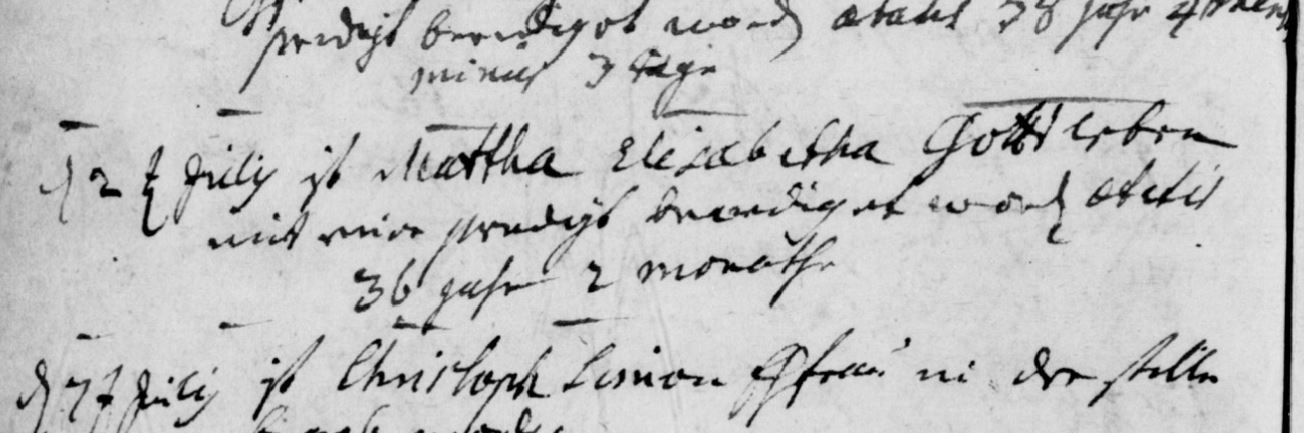 predigt beerdiget word aetatis 38 jahr 4
minus 3 tage
d 2 t July ist Martha Elisabetha Gottsleben
mit einer predigt beerdiget word aetatis
36 jahr 2 monathe
d 7 t July ist Christoph Simon Ehfrau in der stille